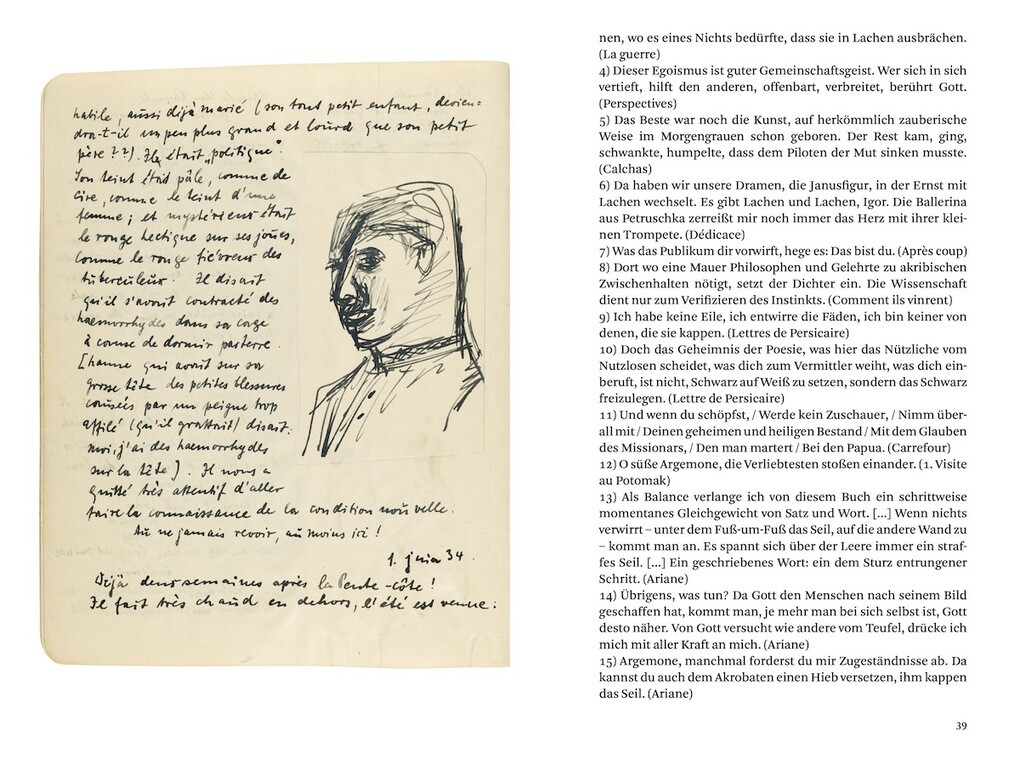 habile, aussi déjà marié (son tout petit enfant, devien=
dra-t-il un peu plus grand et lourd que son petit
père ??). Il était „politique".
Son teint était pâle, comme de
cire, comme le teint d'une
femme; et mystérieux était
le rouge hectique sur ses joues,
comme le rouge fiévreux des
tuberculeux. Il disait
qu'il s'avait contracté des
haemorrhydes dans sa cage
à cause de dormir parterre.
qui avait sur sa
grosse tête des petites blessures
causées par un peigne trop
affilé (qu'il grattait) disait:
moi, j'ai des haemorrhydes
sur la tête]. Il nous a
quitté très attentif d'aller
faire la connaissance de la condition nouvelle.
Au ne jamais revoir, au moins ici!
1. juin 34.
Déjà deux semaines après la Pente-côte!
Il fait très chaud en dehors, l'été est venue:
nen, wo es eines Nichts bedürfte, dass sie in Lachen ausbrächen.
(La guerre)
4) Dieser Egoismus ist guter Gemeinschaftsgeist. Wer sich in sich
vertieft, hilft den anderen, offenbart, verbreitet, berührt Gott.
(Perspectives)
5) Das Beste war noch die Kunst, auf herkömmlich zauberische
Weise im Morgengrauen schon geboren. Der Rest kam, ging,
schwankte, humpelte, dass dem Piloten der Mut sinken musste.
(Calchas)
6) Da haben wir unsere Dramen, die Janusfigur, in der Ernst mit
Lachen wechselt. Es gibt Lachen und Lachen, Igor. Die Ballerina
aus Petruschka zerreißt mir noch immer das Herz mit ihrer klei-
nen Trompete. (Dédicace)
7) Was das Publikum dir vorwirft, hege es: Das bist du. (Après coup)
8) Dort wo eine Mauer Philosophen und Gelehrte zu akribischen
Zwischenhalten nötigt, setzt der Dichter ein. Die Wissenschaft
dient nur zum Verifizieren des Instinkts. (Comment ils vinrent)
9) Ich habe keine Eile, ich entwirre die Fäden, ich bin keiner von
denen, die sie kappen. (Lettres de Persicaire)
10) Doch das Geheimnis der Poesie, was hier das Nützliche vom
Nutzlosen scheidet, was dich zum Vermittler weiht, was dich ein-
beruft, ist nicht, Schwarz auf Weiß zu setzen, sondern das Schwarz
freizulegen. (Lettre de Persicaire)
11) Und wenn du schöpfst, / Werde kein Zuschauer, / Nimm über-
all mit / Deinen geheimen und heiligen Bestand / Mit dem Glauben
des Missionars, / Den man martert / Bei den Papua. (Carrefour)
12) O süße Argemone, die Verliebtesten stoßen einander. (1. Visite
au Potomak)
13) Als Balance verlange ich von diesem Buch ein schrittweise
momentanes Gleichgewicht von Satz und Wort. [...] Wenn nichts
verwirrt – unter dem Fuß-um-Fuß das Seil, auf die andere Wand zu
– kommt man an. Es spannt sich über der Leere immer ein straf-
fes Seil. [...] Ein geschriebenes Wort: ein dem Sturz entrungener
Schritt. (Ariane)
14) Übrigens, was tun? Da Gott den Menschen nach seinem Bild
geschaffen hat, kommt man, je mehr man bei sich selbst ist, Gott
desto näher. Von Gott versucht wie andere vom Teufel, drücke ich
mich mit aller Kraft an mich. (Ariane)
15) Argemone, manchmal forderst du mir Zugeständnisse ab. Da
kannst du auch dem Akrobaten einen Hieb versetzen, ihm kappen
das Seil. (Ariane)
39